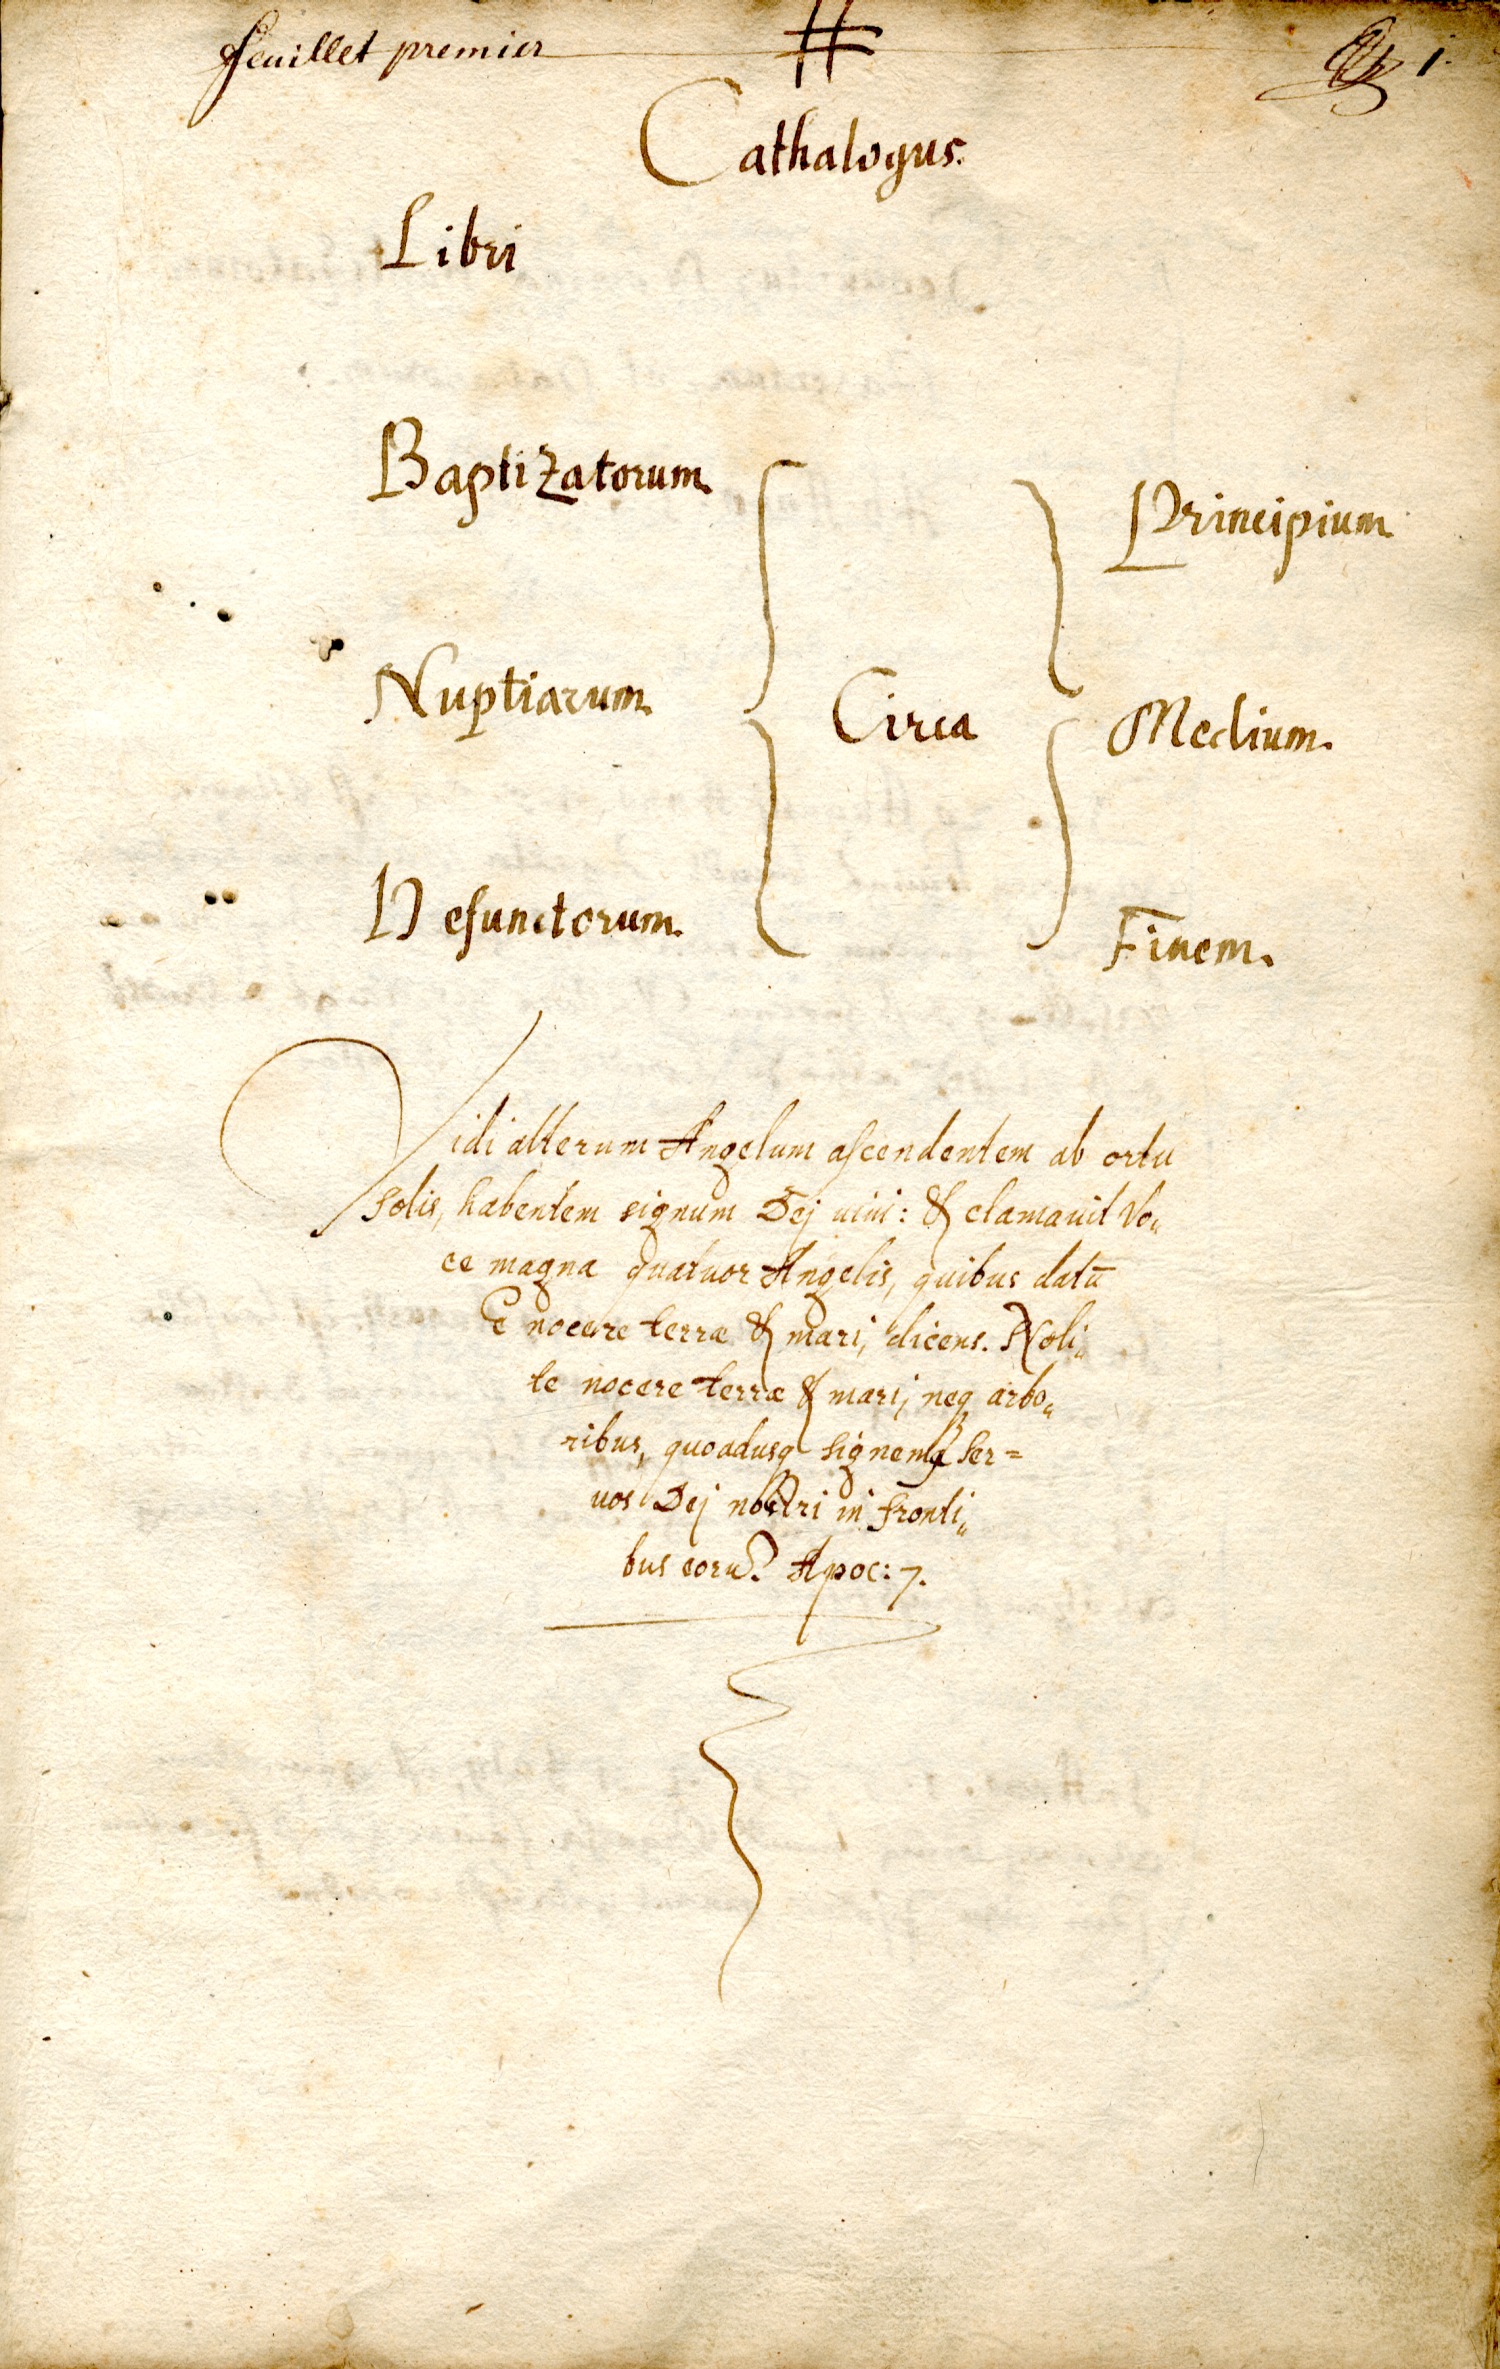 feuillet premier 1.
Cathalogus.
Libri
Baptizatorum.
Principium.
Nuptiarum.
Circa
Medium.
Defunctorum.
Finem.
Vidi alterum Angelum ascendentem ab ortu
solis, habentem signum Dej uiui: & clamauit Vo„
ce magna quatuor Angelis, quibus datū
ē nocere terræ & mari, dicens. Noli„
te nocere terræ & mari, neq arbo„
ribus, quoadusq signemq ser=
uos Dej nostri in fronti„
bus eorū. Apoc: 7.